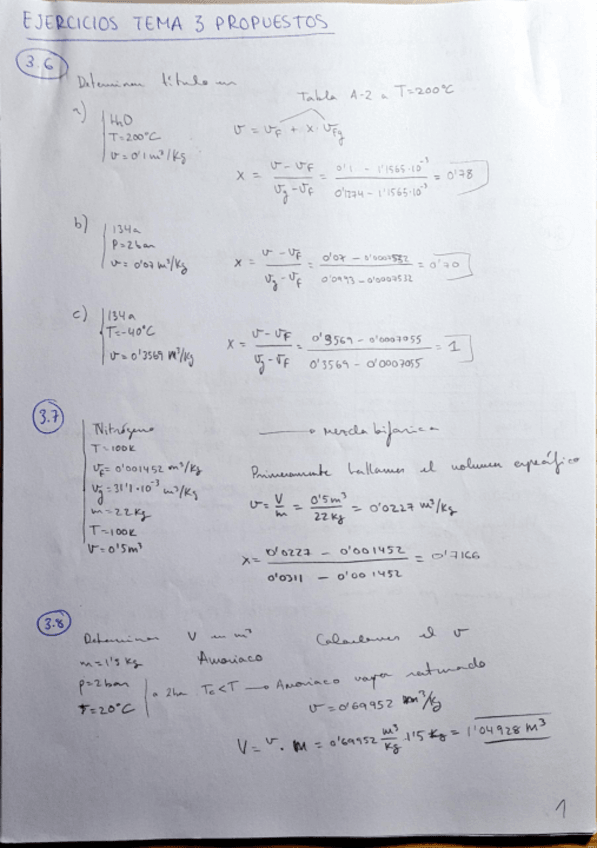 EJERCICIOS TEMA 3 PROPUESTOS
3.6
Determinar título en
Tabla A-2 a T=200°C
a)
H2O
T=200°C
v=0'1 m³/kg
v = vF + x · vFg
x = (v - vF)/(vg - vF) = (0'1 - 1'1565·10⁻³)/(0'1274 - 1'1565·10⁻³) = 0'78
b)
134a
P=2bar
v=0'07 m³/kg
x = (v - vF)/(vg - vF) = (0'07 - 0'0007532)/(0'0993 - 0'0007532) = 0'70
c)
134a
T=-40°C
v=0'3569 m³/kg
x = (v - vF)/(vg - vF) = (0'3569 - 0'0007055)/(0'3569 - 0'0007055) = 1
3.7
Nitrógeno → mezcla bifásica
T=100K
vF=0'001452 m³/kg
vg=31'1·10⁻³ m³/kg
m=22kg
T=100K
V=0'5m³
Primeramente hallamos el volumen específico
v = V/m = 0'5m³/22kg = 0'0227 m³/kg
x = (0'0227 - 0'001452)/(0'0311 - 0'001452) = 0'7166
3.8
Determinar V en m³ Calculamos el v
m=1'5 kg Amoniaco
P=2bar
T=20°C
a 2bar Tc<T → Amoniaco vapor saturado
v=0'69952 m³/kg
V = v · m = 0'69952 m³/kg · 1'5 kg = 1'04928 m³
1